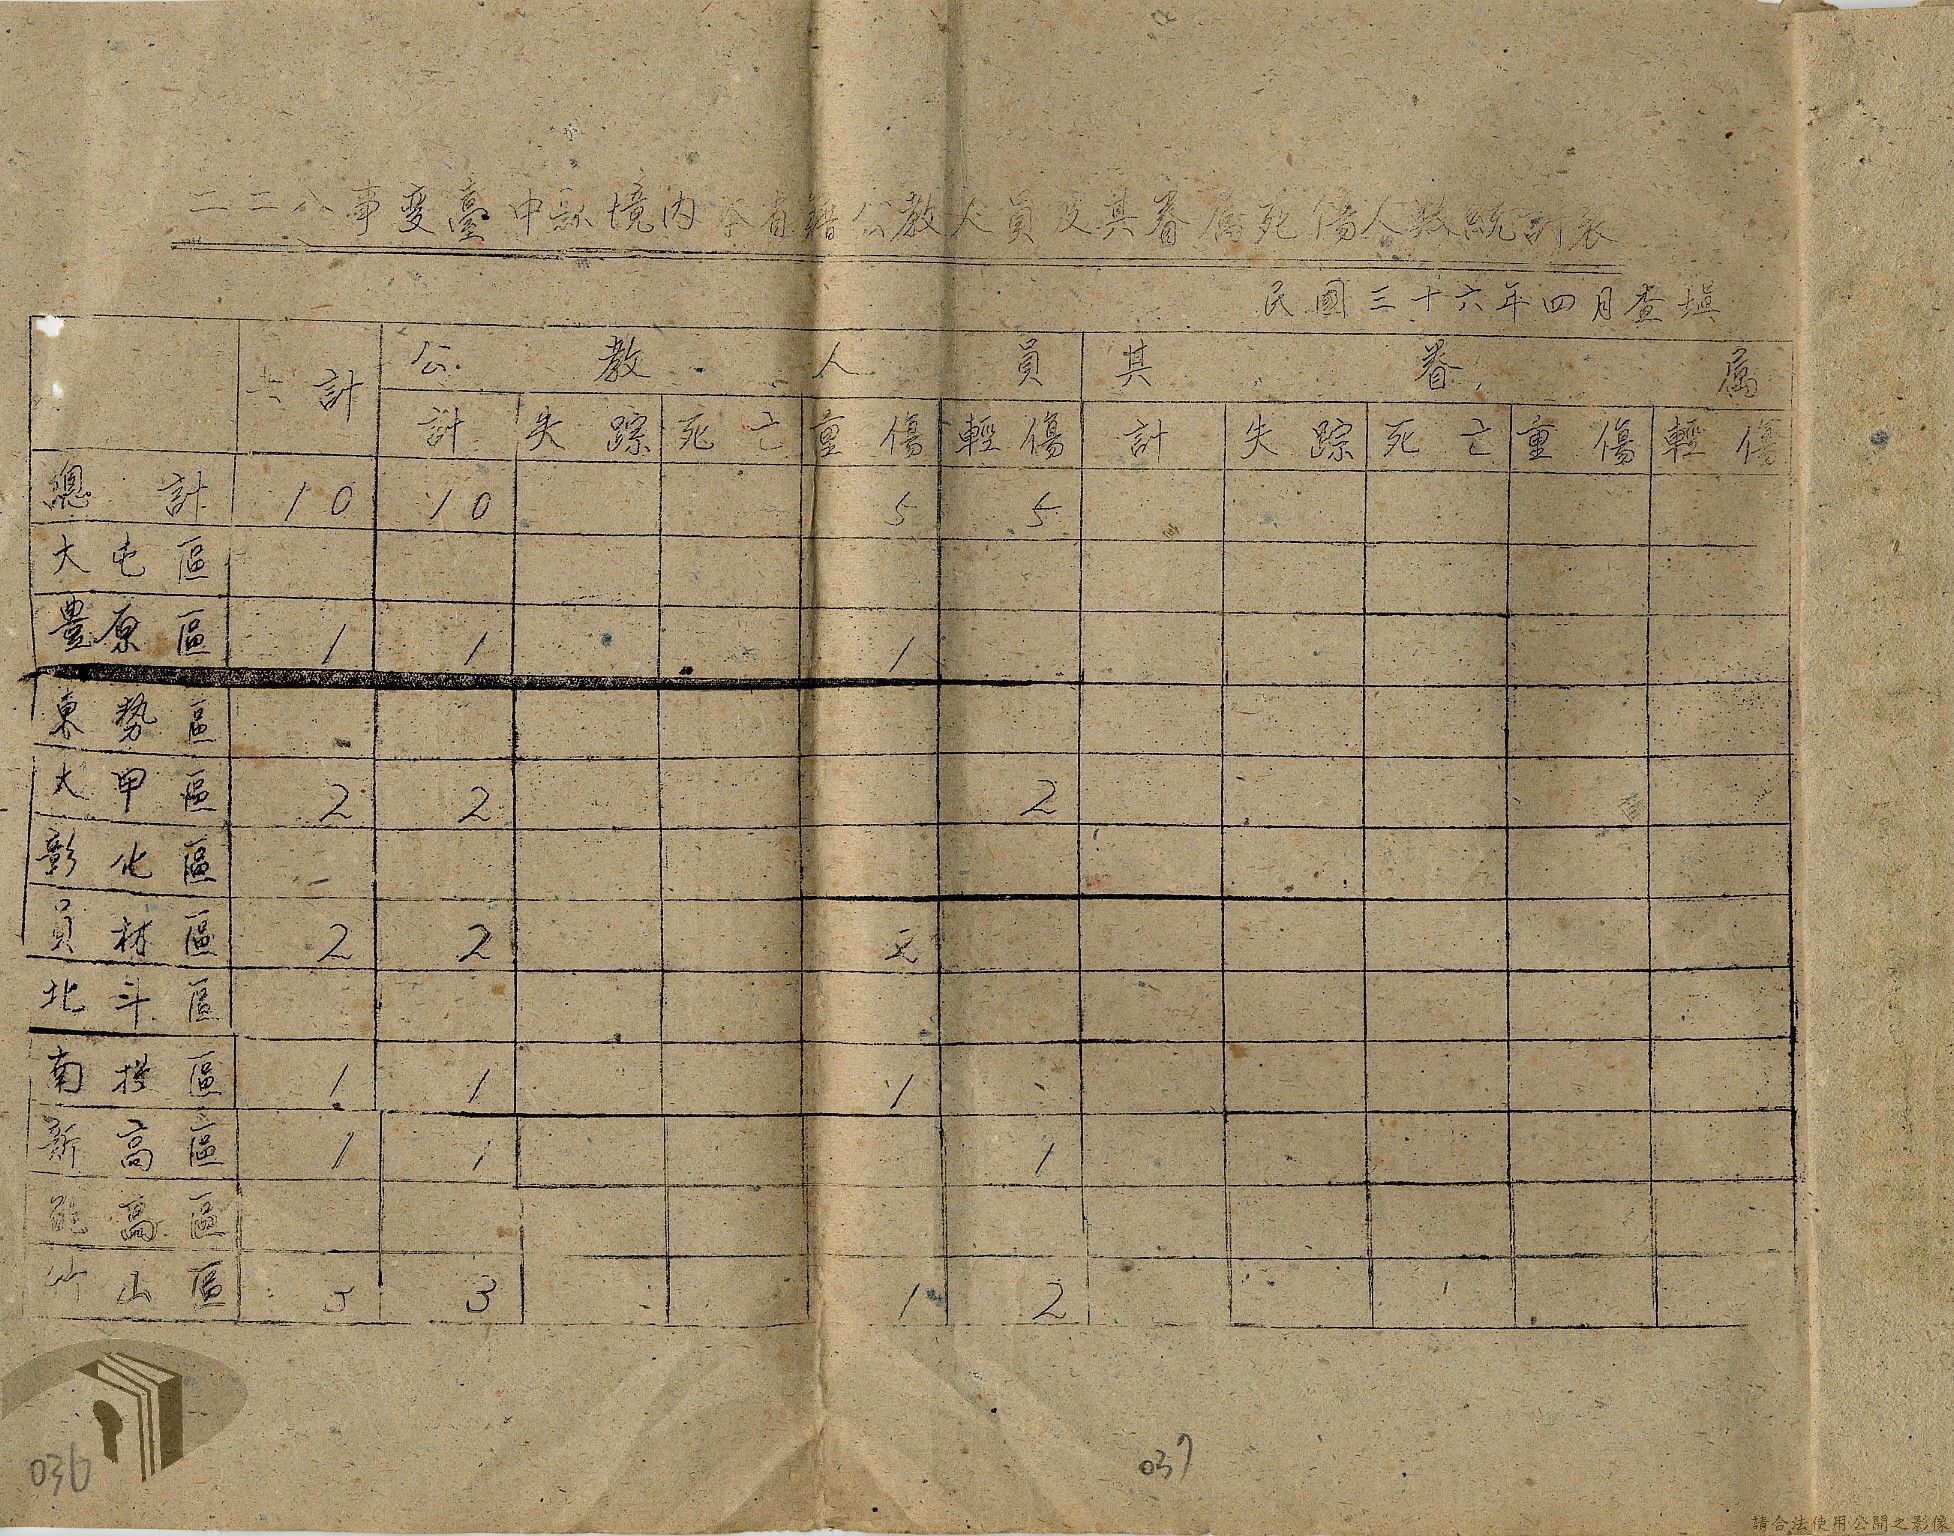 二二八事变臺中縣境内 省籍公教人員及其眷属死傷人数統計表
民國三十六年四月查填
計 公教人員 其眷属
計 失踪 死亡 重傷 輕傷 計 失踪 死亡 重傷 輕傷
總計 10 10 5 5
大屯區
豊原區 1 1 1
東勢區
大甲區 2 2 2
彰化區
員林區 2 2 2
北斗區
南投區 1 1 1
新高區 1 1 1
能高區
竹山區 3 3 1 2
036
037
請合法使用公開之影像